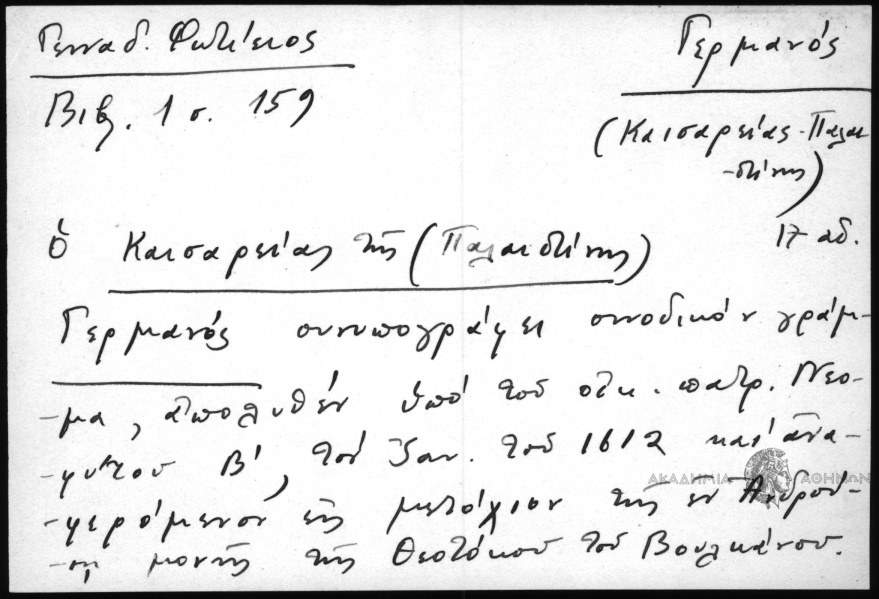 Γενναδ. Φωτίειος
Βιβ. 1 σ. 159
Γερμανός
(Καισαρείας-Παλαι-
-στίνης)
17 αἰ.
ὁ Καισαρείας τῆς (Παλαιστίνης)
Γερμανός συνυπογράφει συνοδικόν γράμ-
-μα, ἀπολυθέν ὑπό τοῦ οἰκ. πατρ. Νεο-
-φύτου Β', τόν Ἰαν. τοῦ 1612 καί ἀνα-
-φερόμενον εἰς μετόχιον τῆς ἐν Ἀνδρού-
-σῃ μονῆς τῆς Θεοτόκου τοῦ Βουλκάνου.
ΑΚΑΔΗΜΙΑ ΑΘΗΝΩΝ